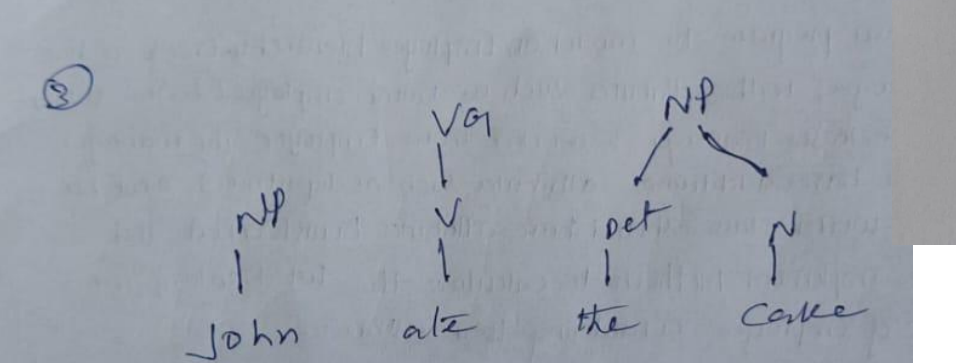 3
VG NP
NP V Det N
John ate the cake